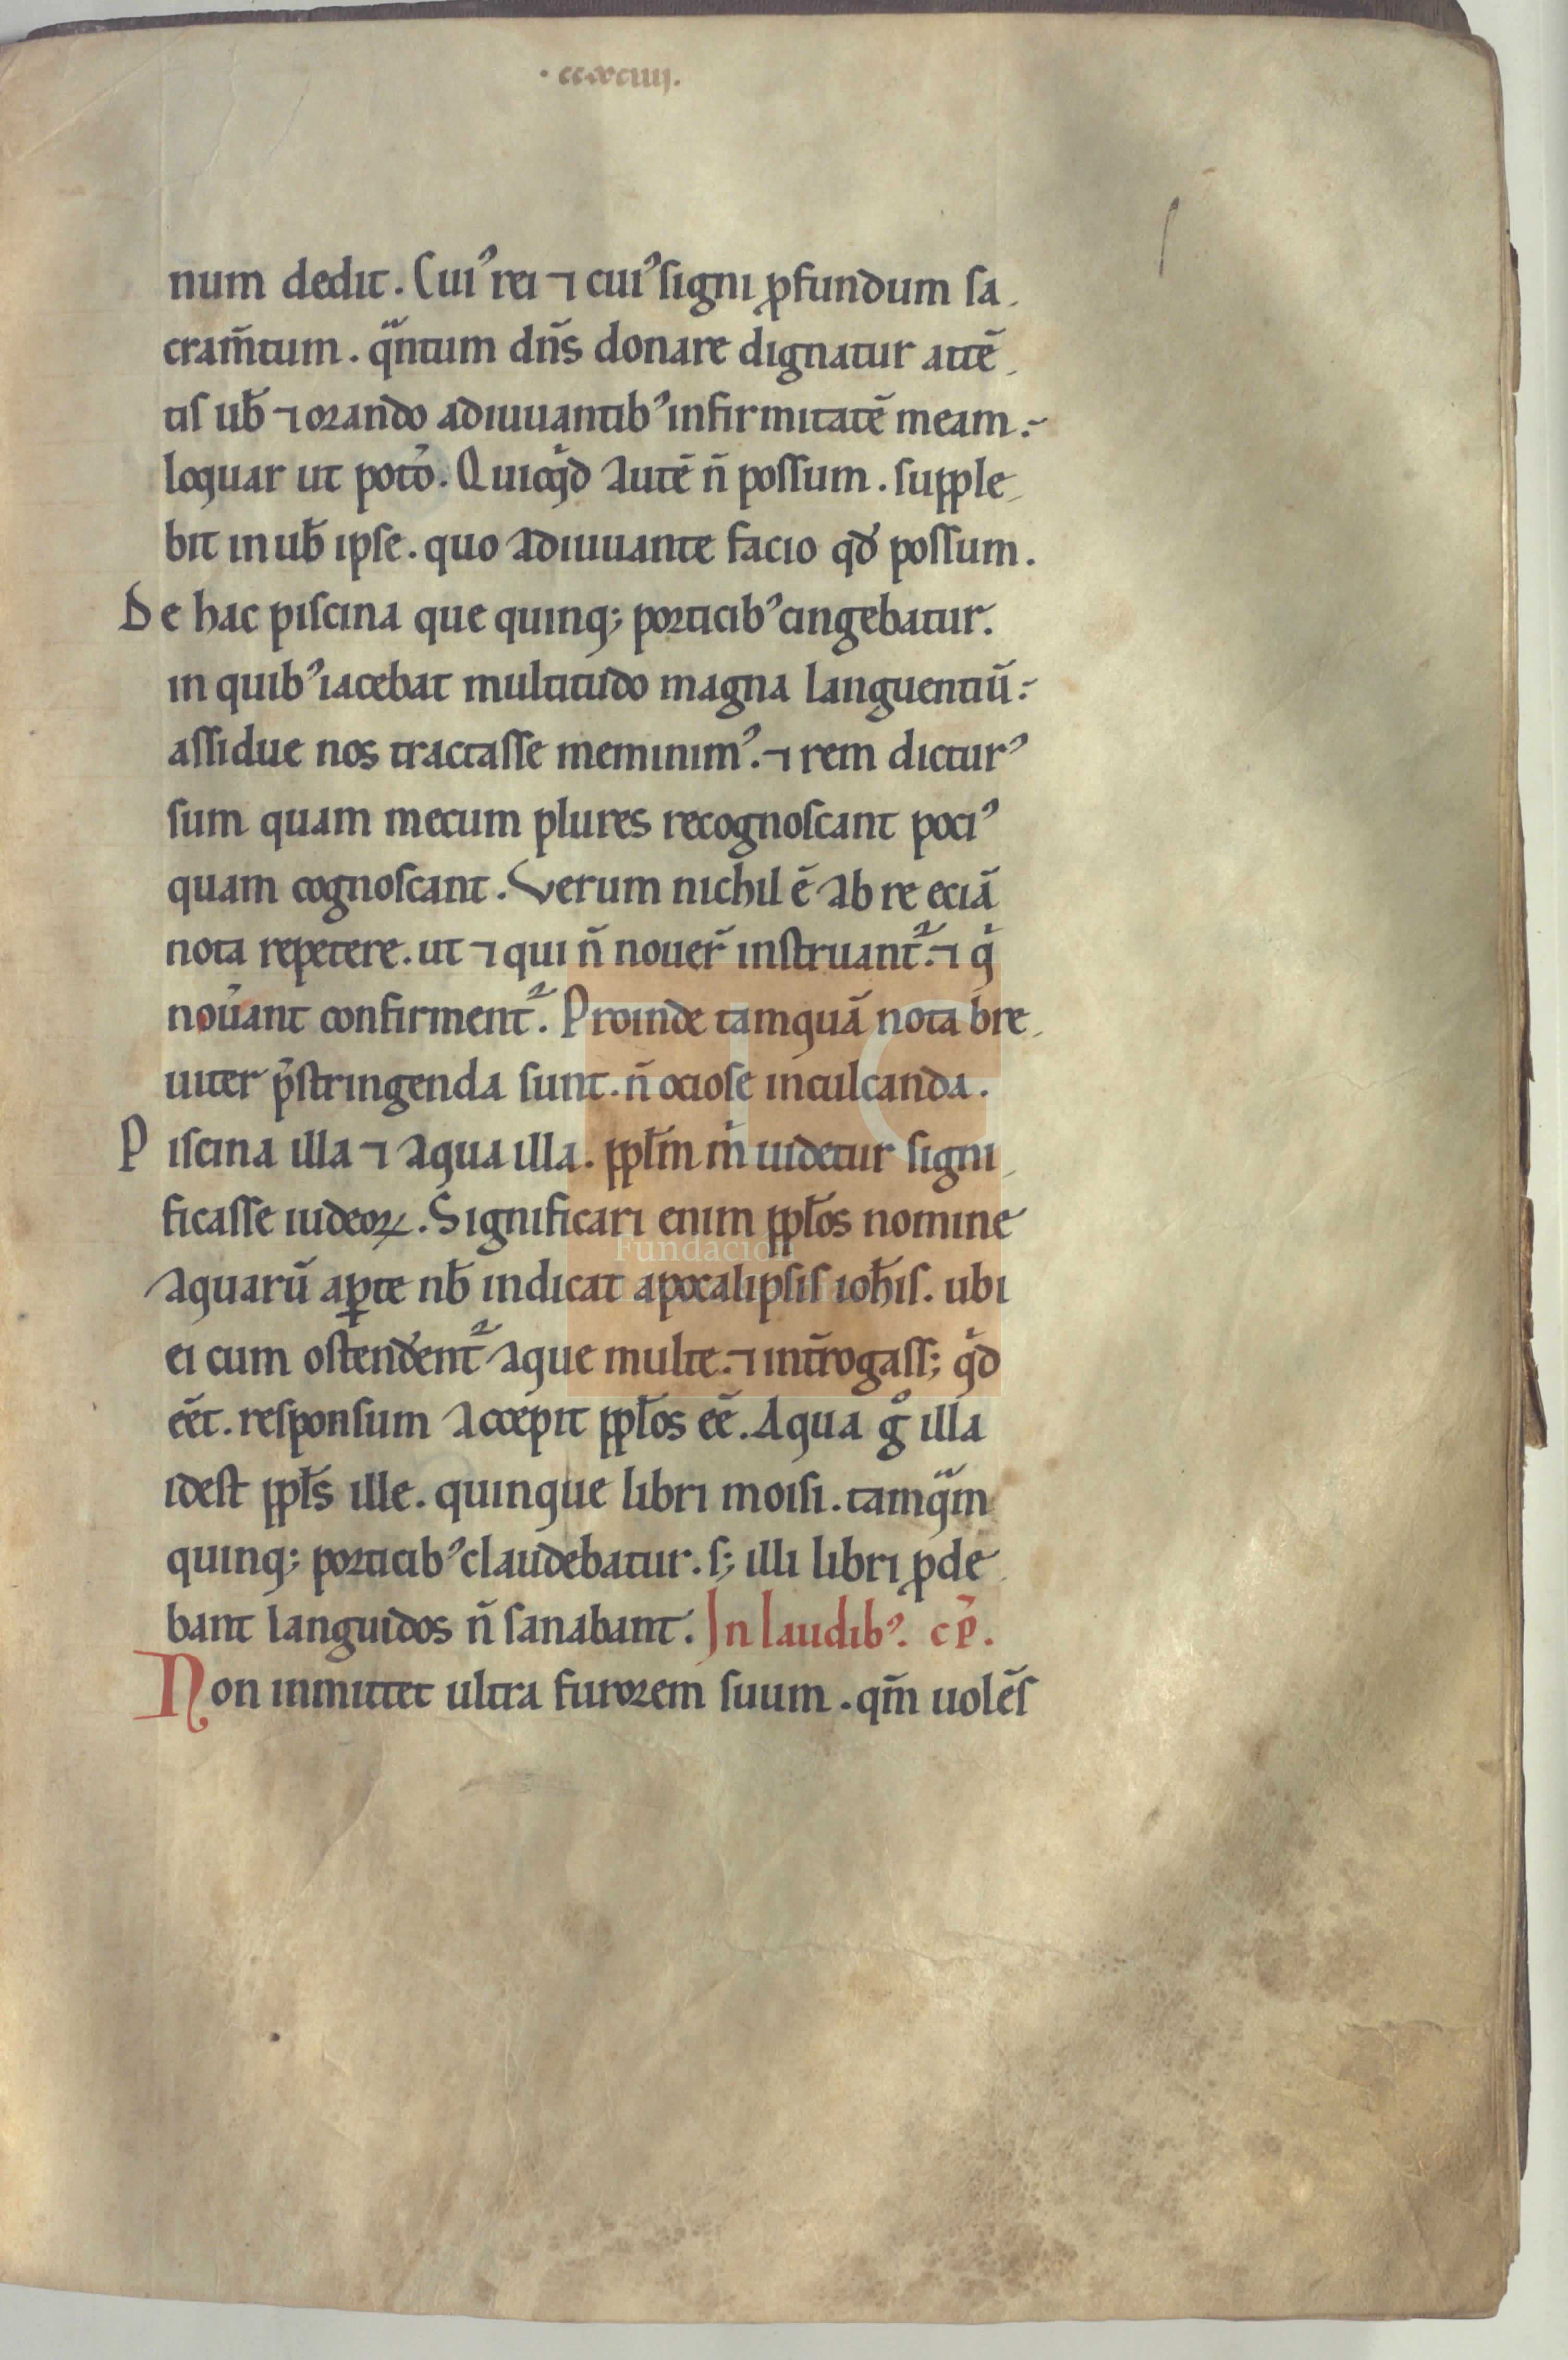 ·ccxciiij.
num dedit. Cuiꝰ rei ⁊ cuiꝰ signi ꝓfundum sa
cram̄tum. qͣntum dn̄s donare dignatur attē
tis ub̄ ⁊ orando adiuuantibꝰ infirmitatē meam.
loquar ut poto᷑. Quicqͥd autē n̄ possum. supple
bit in ub̄ ipse. quo adiuuante facio qd̓ possum.
De hac piscina que quinq; porticibꝰ cingebatur.
in quibꝰ iacebat multitudo magna languentiū.
assidue nos tractasse meminimꝰ. ⁊ rem dicturꝰ
sum quam mecum plures recognoscant pociꝰ
quam cognoscant. Verum nichil ē ab re eciā
nota repetere. ut ⁊ qui n̄ nouer̄ instruant᷑. ⁊ qͥ
nou̓ant confirment᷑. Proinde tamquā nota bre
uiter p̄stringenda sunt. n̄ ociose inculcanda.
Piscina illa ⁊ aqua illa. ppl̄m ṁ uidetur signi
ficasse iudeoꝝ. Significari enim ppl̄os nomine
aquarū aꝑte nb̄ indicat apocalipsis ioh̄is. ubi
ei cum ostend̓ent᷑ aque multe. ⁊ int̄rogass; qͥd
eēt. responsum accepit ppl̄os eē. Aqua gͦ illa
idest ppl̄s ille. quinque libri moisi. tamqͣm
quinq; porticibꝰ claudebatur. s; illi libri ꝓde
bant languidos n̄ sanabant. In laudibꝰ. cp̄.
Non inmittet ultra furorem suum. qm̄ uolēs
Fundación